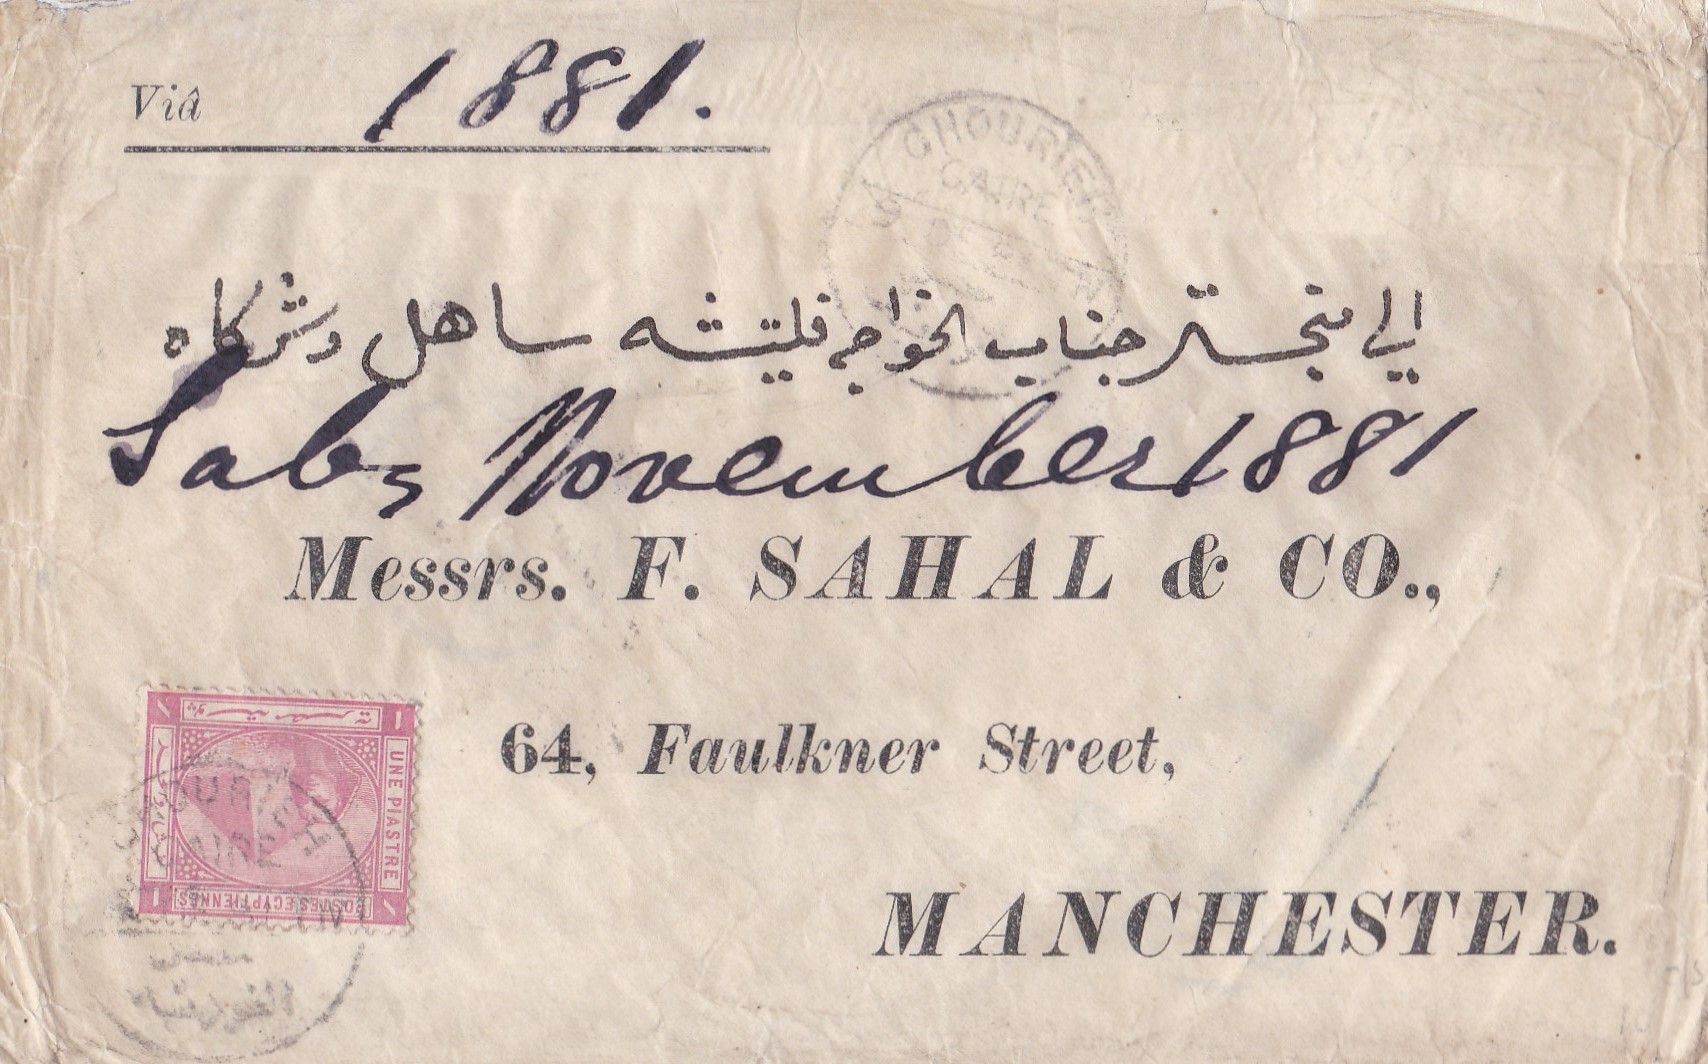 Viâ 1881.
GHOURIEH
CAIRE
الي منجستر جناب الخواجه فليتشه ساهل وشركاه
Sales November 1881
Messrs. F. SAHAL & CO.,
64, Faulkner Street,
MANCHESTER.
UNE PIASTRE
POSTES EGYPTIENNES
CAIRE